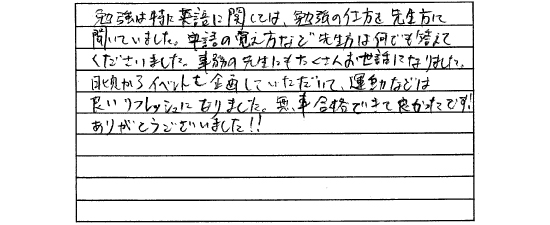 勉強は特に英語に関しては、勉強の仕方を先生方に
聞いていました。単語の覚え方など先生方は何でも答えて
くださいました。事務の先生にもたくさんお世話になりました。
日頃からイベントを企画していただいて、運動などは
良いリフレッシュになりました。無事合格できて良かったです!
ありがとうございました!!